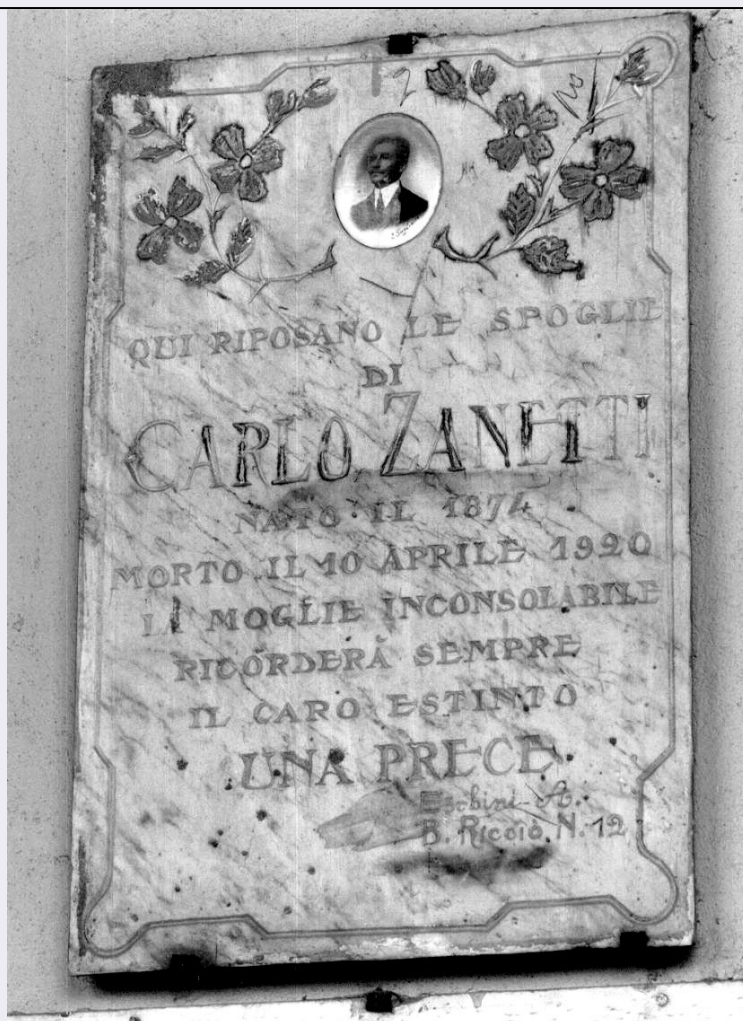 QUI RIPOSANO LE SPOGLIE
DI
CARLO ZANETTI
NATO IL 1874
MORTO IL 10 APRILE 1920
LA MOGLIE INCONSOLABILE
RICORDERÀ SEMPRE
IL CARO ESTINTO
UNA PRECE.
B. N. 12